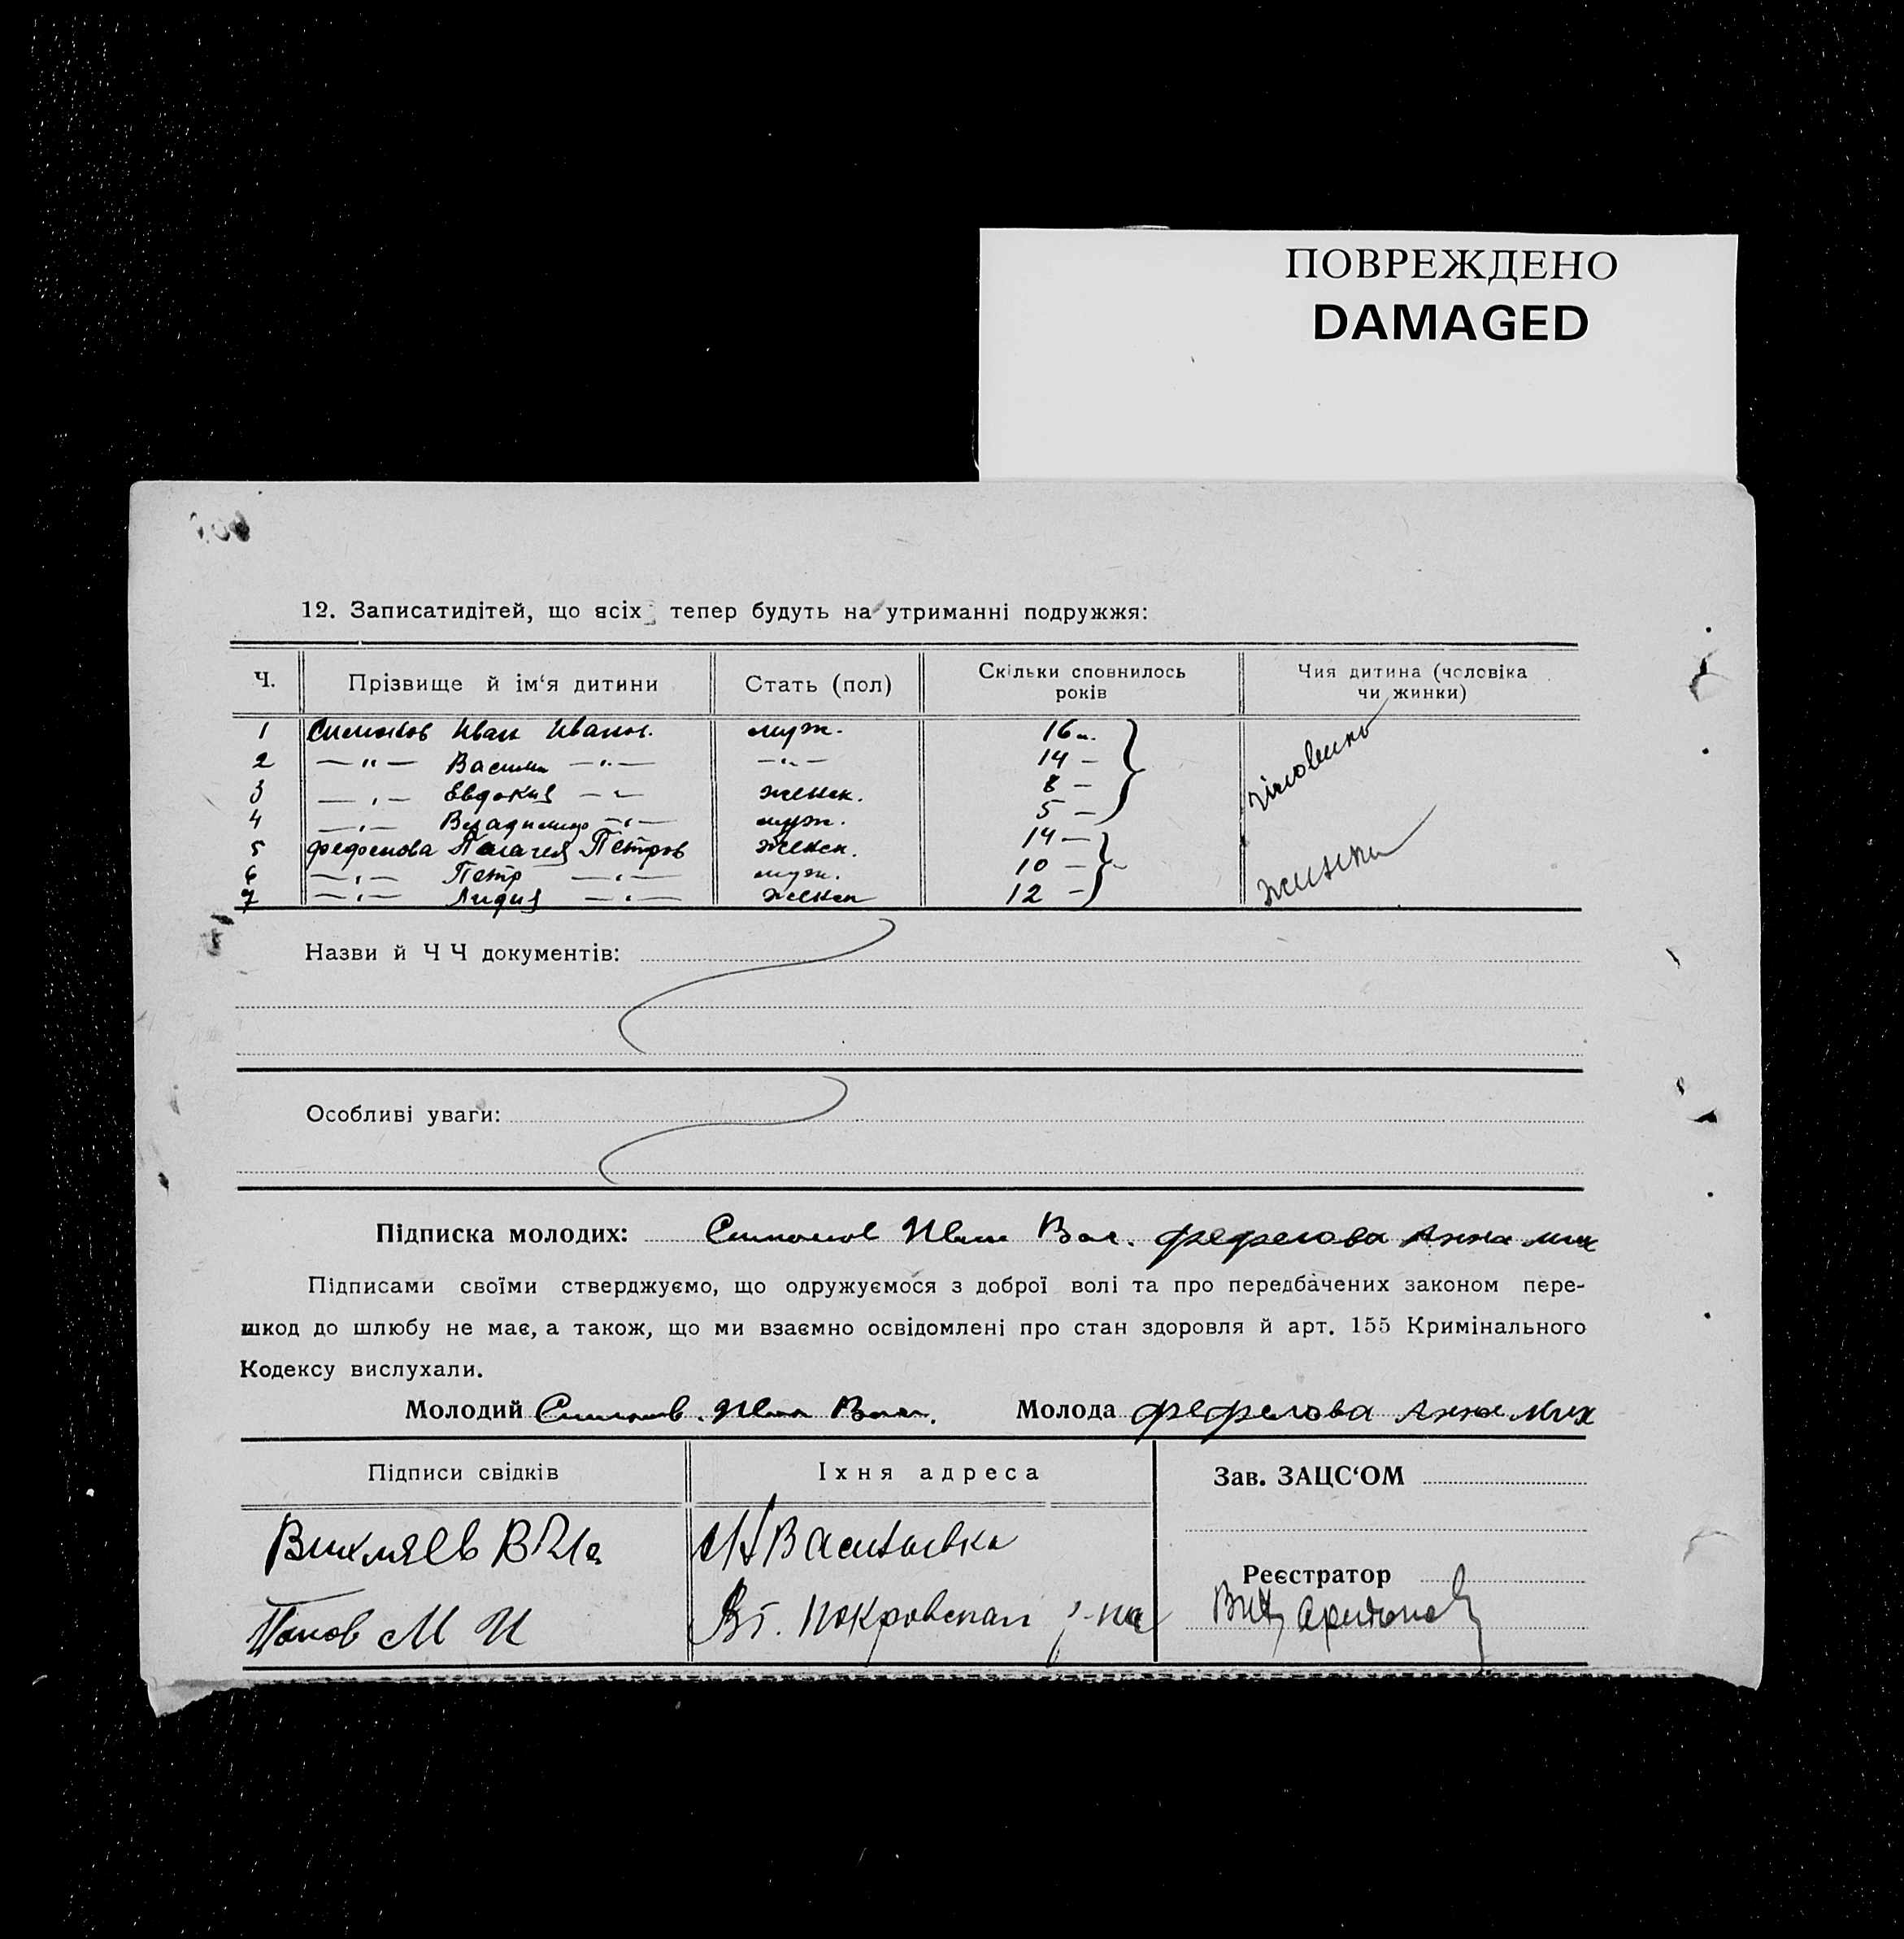 ПОВРЕЖДЕНО
DAMAGED
12. Записатидітей, що всіх тепер будуть на утриманні подружжя:
Ч. Прізвище й ім‘я дитини Стать (пол) Скільки сповнилось років Чия дитина (чоловіка чи жинки)
1 Симонов Иван Иванов. муж. 16 л.
2 —"— Васили —"— —"— 14 —
3 —"— Евдокия —"— женск. 8 — чоловика
4 —"— Владимир —"— муж. 5 —
5 Фефелова Пелагея Петров женск. 14 —
6 —"— Петр —"— муж. 10 — жинки
7 —"— Лидия —"— женск 12 —
Назви й Ч Ч документів:
Особливі уваги:
Підписка молодих: Симонов Иван Вас. Фефелова Анна Мих
Підписами своїми стверджуємо, що одружуємося з доброї волі та про передбачених законом пере-
шкод до шлюбу не має, а також, що ми взаємно освідомлені про стан здоровля й арт. 155 Кримінального
Кодексу вислухали.
Молодий Симонов Иван Васи. Молода Фефелова Анна Мих
Підписи свідків Їхня адреса Зав. ЗАЦС‘ОМ
Вихляев В Васильевка
Реєстратор
Попов М И Покровская